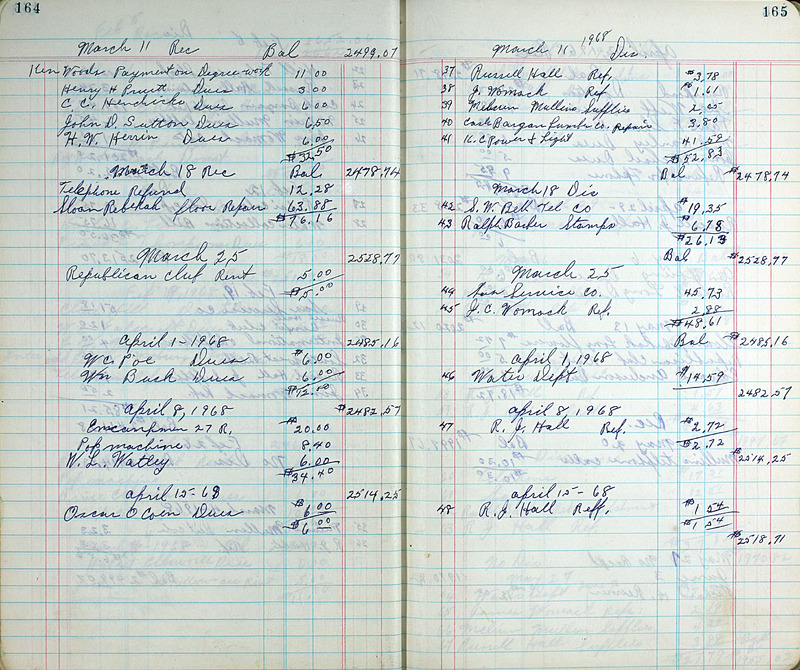 164
March 11 Rec Bal 2499.07
Ken Woods Payment on Degree work 11.00
Henry H Pruitt Dues 3.00
C.C. Hendricks Dues 6.00
John D Sutton Dues 6.50
H.W. Herrin Dues 6.00
$32.50
March 18 Rec Bal 2478.74
Telephone Refund 12.28
Sloan Rebekah floor Repair 63.88
$76.16
March 25 2528.77
Republican Club Rent 5.00
$5.00
April 1-1968 2485.16
W C Poe Dues $6.00
Wm Bush Dues 6.00
$12.00
April 8, 1968 $2482.57
Encampmen 27 R. 20.00
Pop machine 8.40
W.L. Watley 6.00
$34.40
April 15-68 2514.25
Oscar O Coin Dues $6.00
$6.00
165
March 11 1968 Dis.
37 Russell Hall Ref. $3.78
38 J. Womack Ref $1.61
39 Melvin Mullins Supplies 2.05
40 Cash Bargan Lumber Co. Repair 3.80
41 K.C Power & Light 41.59
$52.83
Bal $2478.74
March 18 Dis
42 S.W Bell Tel Co $19.35
43 Ralph Barker Stamps $6.78
$26.13
Bal $2528.77
March 25
44 Service Co. 45.73
45 J.C. Womack Ref. 2.88
$48.61
Bal $2485.16
April 1, 1968
46 Water Dept $14.59
2482.57
April 8, 1968
47 R.J. Hall Ref. $2.72
$2.72
$2514.25
April 15-68
48 R.J. Hall Reff. $1.54
$1.54
$2518.71